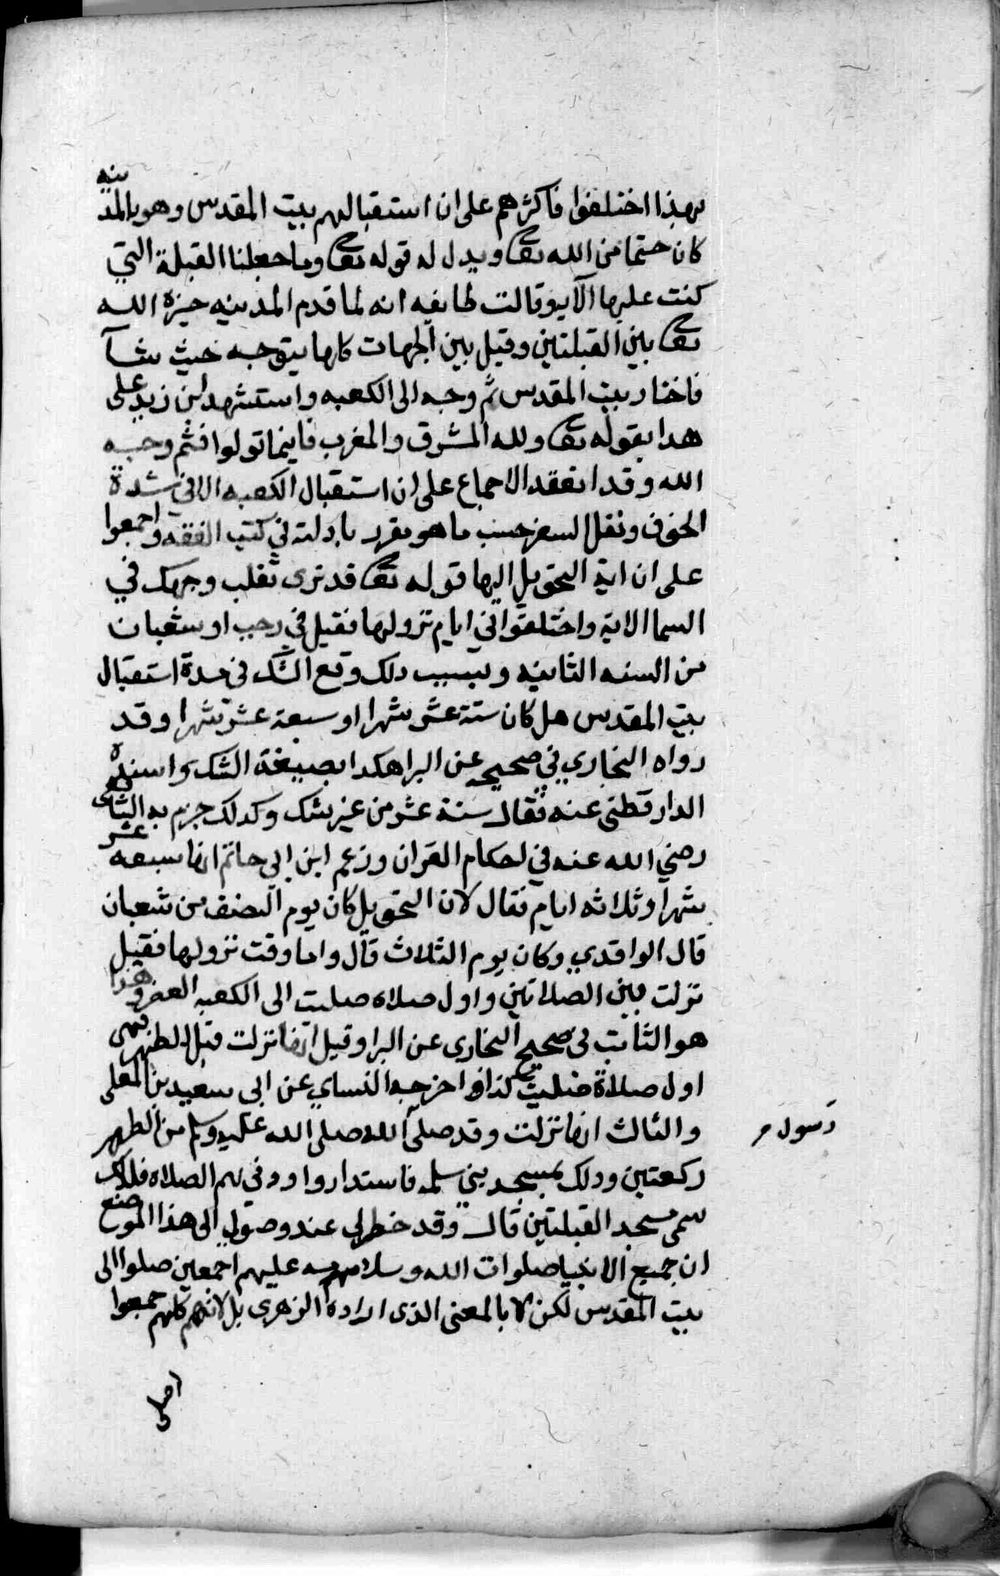 بهذا اختلفوا فاكثرهم على ان استقبالهم بيت المقدس وهو بالمدينه
كان حتما من الله تعالى ويدل له قوله تعالى وما جعلنا القبلة التي
كنت عليها الآيه وقالت طايفه انه لما قدم المدينه خيره الله
تعالى بين القبلتين وقيل بين الجهات كلها يتوجه حيث شآ
فاختار بيت المقدس ثم وجه الى الكعبه واستشهد ابن زيد على
هدا بقوله تعالى ولله المشرق والمغرب فاينما تولوا فثم وجه
الله وقد انعقد الاجماع على ان استقبال الكعبه الا في شدة
الخوف ونفل السفر حسب ما هو مقرر بادلته في كتب الفقه واجمعوا
على ان اية التحويل اليها قوله تعالى قد نرى تقلب وجهك في
السما الاية واختلفوا في ايام نزولها فقيل في رجب او شعبان
من السنه الثانيه وبسبب دلك وقع الشك في مدة استقبال
بيت المقدس هل كان ستة عشر شهرا او سبعة عشر شهرا وقد
رواه البخاري في صحيحه عن البرا هكدا بصيغة الشك واسنده
الدارقطني عنه فقال ستة عشر من غير شك وكدلك جزم به الشافعي
رضي الله عنه في احكام القران وزعم ابن ابي حاتم انها سبعه عشر
شهرا وثلاثه ايام فقال لان التحويل كان يوم النصف من شعبان
قال الواقدي وكان يوم الثلاث قال واما وقت نزولها فقيل
نزلت بين الصلاتين واول صلاه صليت الى الكعبه العصر وهذا
هو الثابت في صحيح البخاري عن البرا وقيل انها نزلت قبل الظهر فهي
اول صلاة صليت كذا اخرجه النساي عن ابي سعيد بن المعلى
والثالث انها نزلت وقد صلى الله صلى الله عليه وسلم من الظهر
رسول
ركعتين ودلك بمسجد بني سلمه فاستداروا ووفى لهم الصلاه فلدلك
سمى مسجد القبلتين قال وقد خطر لي عند وصولي الى هذا الموضع
ان جميع الانبيا صلوات الله وسلامه عليهم اجمعين صلوا الى
بيت المقدس لكن لا بالمعنى الذى اراده الزهرى بل لانهم كلهم جمعوا